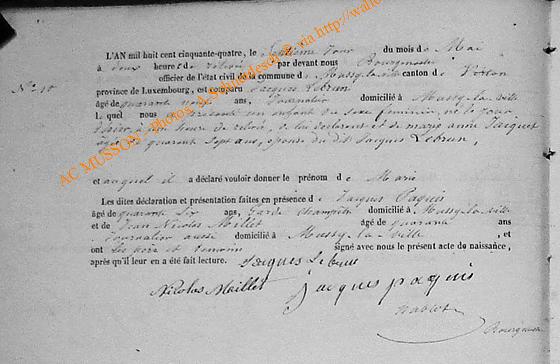 L'AN mil huit cent cinquante-quatre, le Septième jour du mois de Mai
à deux heures de relevé par devant nous Bourgmestre
N° 10
officier de l'état civil de la commune de Mussy-la-ville canton de Virton
province de Luxembourg, est comparu Jacques Lebrun
âgé de quarante ans, Journalier domicilié à Mussy-la-Ville
L quel nous a présenté un enfant du sexe féminin, né le jour
à une heure de relevé, de lui déclarant et de marie anne Jacquet
âgée de quarante sept ans, épouse du dit Jacques Lebrun,
et auquel il a déclaré vouloir donner le prénom de Marie
Les dites déclaration et présentation faites en présence de Jacques Paquis
âgé de quarante six ans, Garde champêtre domicilié à Mussy-la-ville
et de Jean Nicolas Maillet âgé de quarante ans
Journalier aussi domicilié à Mussy-la-Ville, et
ont les père et témoins signé avec nous le présent acte de naissance,
après qu'il leur en a été fait lecture.
Jacques Lebrun
Nicolas Maillet
jacques paquis
AC MUSSON - Photos
via http://